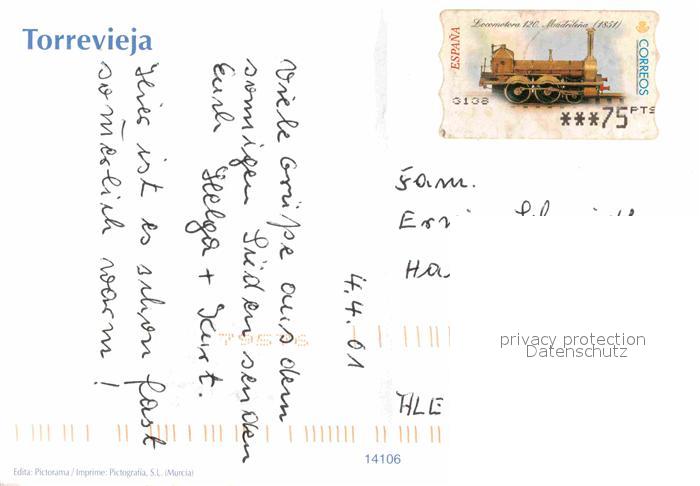 Torrevieja
Locomotora 120. Madrileña (1851)
ESPAÑA
CORREOS
3138
***75 PTS
4.4.01
Viele Grüße aus dem
sonnigen Süden senden
Euch Helga + Kurt.
Hier ist es schon fast
sommerlich warm!
Fam.
HLE
privacy protection
Datenschutz
14106
Edita: Pictorama / Imprime: Pictografía, S.L. (Murcia)